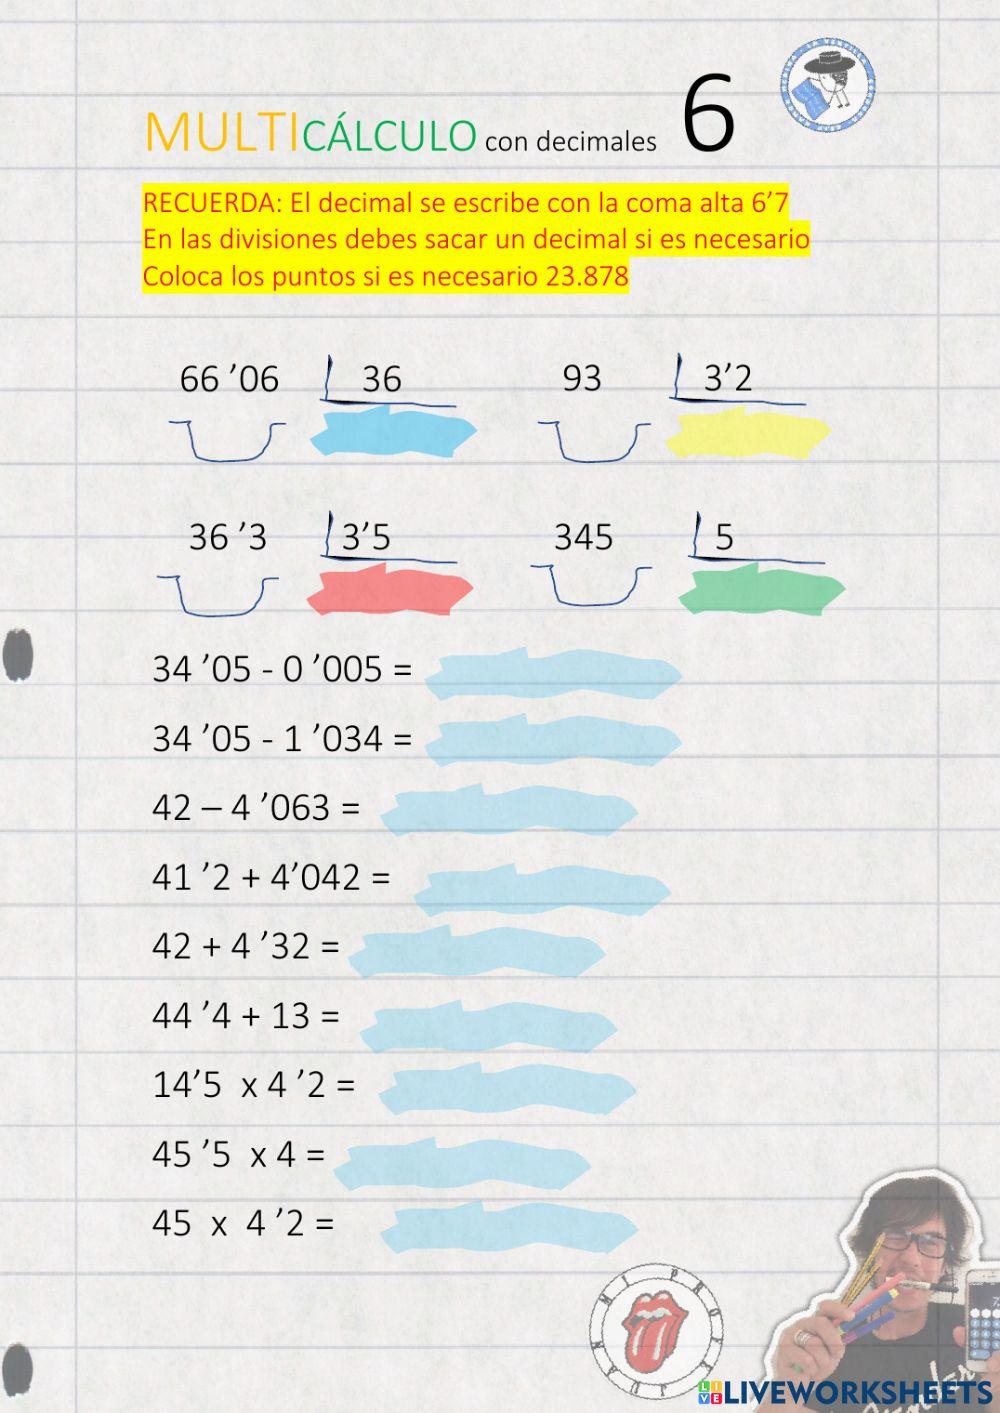 MULTICÁLCULO con decimales 6
RECUERDA: El decimal se escribe con la coma alta 6’7
En las divisiones debes sacar un decimal si es necesario
Coloca los puntos si es necesario 23.878
66 ’06 36 93 3’2
36 ’3 3’5 345 5
34 ’05 - 0 ’005 =
34 ’05 - 1 ’034 =
42 – 4 ’063 =
41 ’2 + 4’042 =
42 + 4 ’32 =
44 ’4 + 13 =
14’5 x 4 ’2 =
45 ’5 x 4 =
45 x 4 ’2 =
LIVEWORKSHEETS